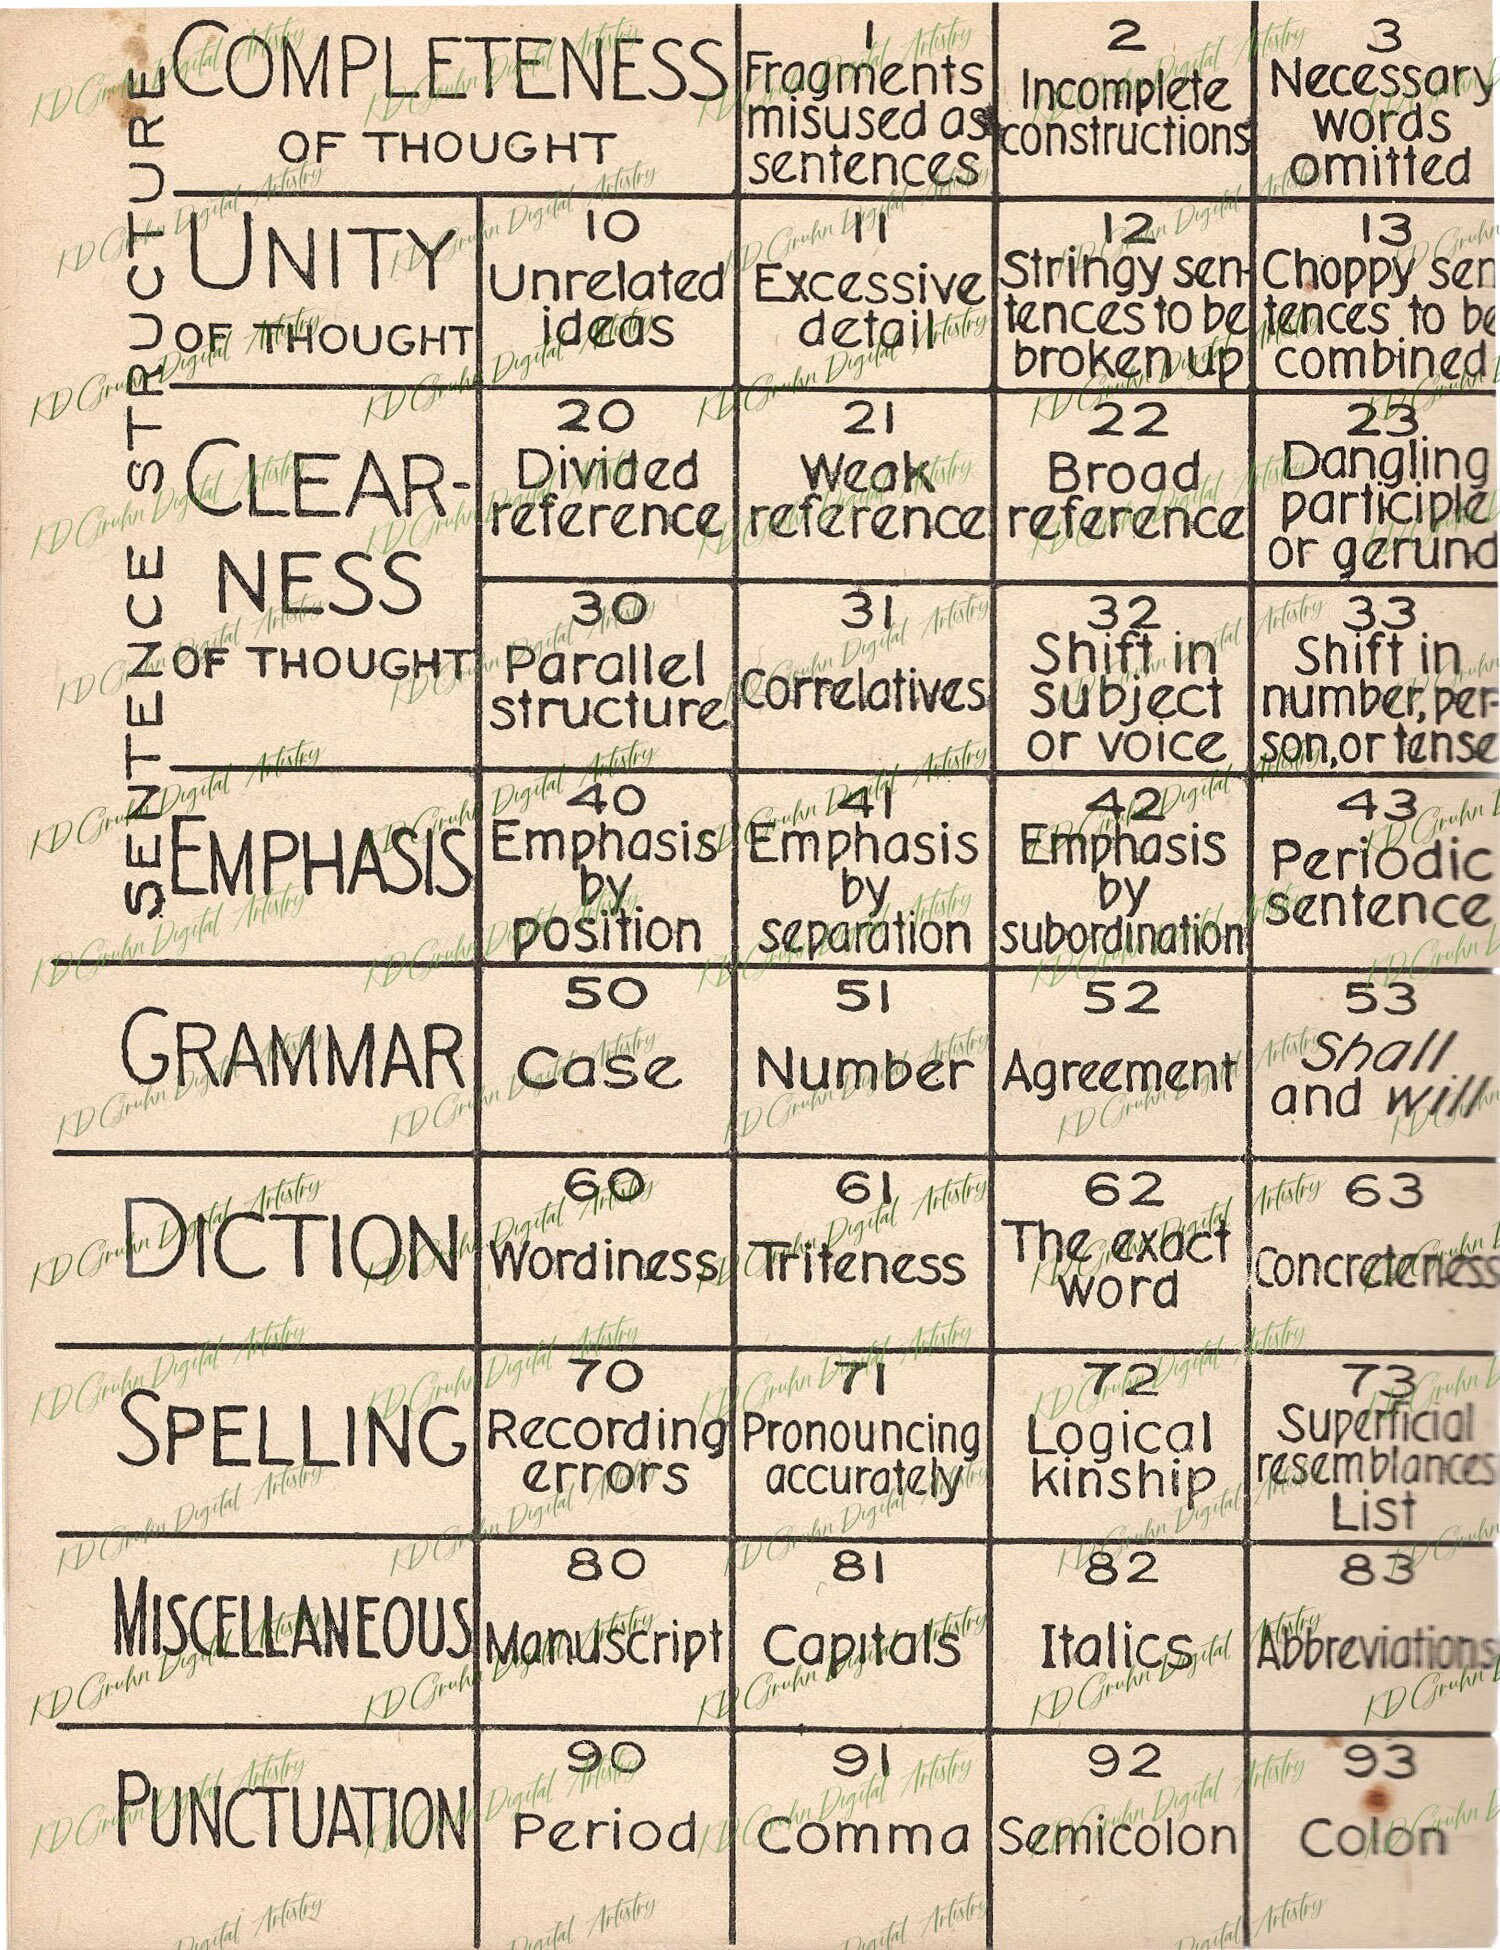 SENTENCE STRUCTURE
COMPLETENESS
OF THOUGHT
1
Fragments
misused as
sentences
2
Incomplete
constructions
3
Necessary
words
omitted
UNITY
OF THOUGHT
10
Unrelated
ideas
11
Excessive
detail
12
Stringy sen-
tences to be
broken up
13
Choppy sen
tences to be
combined
CLEAR-
NESS
OF THOUGHT
20
Divided
reference
21
Weak
reference
22
Broad
reference
23
Dangling
participle
or gerund
30
Parallel
structure
31
Correlatives
32
Shift in
subject
or voice
33
Shift in
number, per-
son, or tense
EMPHASIS
40
Emphasis
by
position
41
Emphasis
by
separation
42
Emphasis
by
subordination
43
Periodic
sentence
GRAMMAR
50
Case
51
Number
52
Agreement
53
Shall
and will
DICTION
60
Wordiness
61
Triteness
62
The exact
word
63
Concreteness
SPELLING
70
Recording
errors
71
Pronouncing
accurately
72
Logical
kinship
73
Superficial
resemblances
List
MISCELLANEOUS
80
Manuscript
81
Capitals
82
Italics
83
Abbreviations
PUNCTUATION
90
Period
91
Comma
92
Semicolon
93
Colon
KD Gruhn Digital Artistry